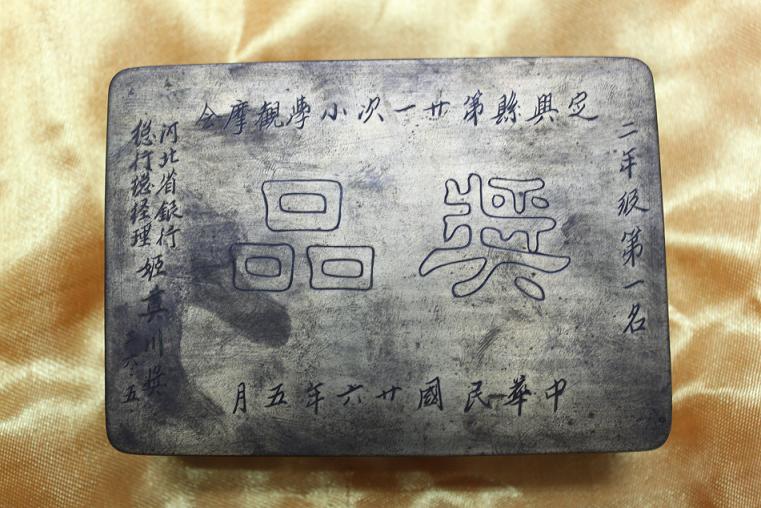 定興縣第廿一次小學觀摩会
二年級第一名
獎品
中華民國廿六年五月
河北省銀行
總行總经理姬奠川奬